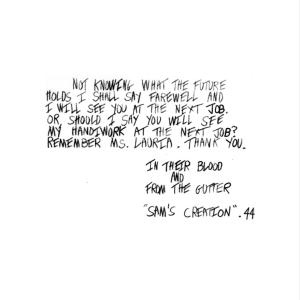 NOT KNOWING WHAT THE FUTURE
HOLDS I SHALL SAY FAREWELL AND
I WILL SEE YOU AT THE NEXT JOB.
OR, SHOULD I SAY YOU WILL SEE
MY HANDIWORK AT THE NEXT JOB?
REMEMBER MS. LAURIA. THANK YOU.
IN THEIR BLOOD
AND
FROM THE GUTTER
"SAM'S CREATION".44